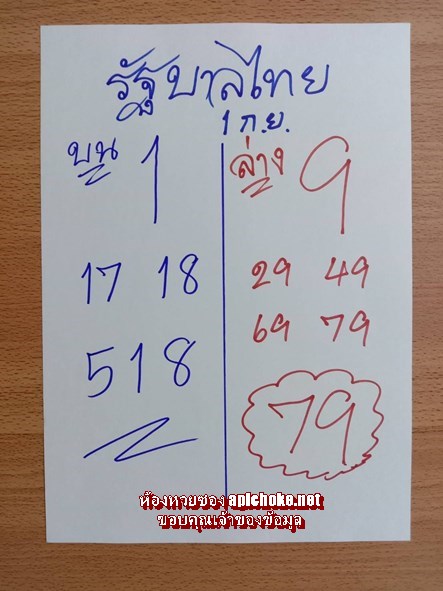 รัฐบาลไทย
1 ก.ย.
บน 1
17 18
518
ล่าง 9
29 49
69 79
79
ห้องหวยซอง apichoke.net
ขอบคุณเจ้าของข้อมูล